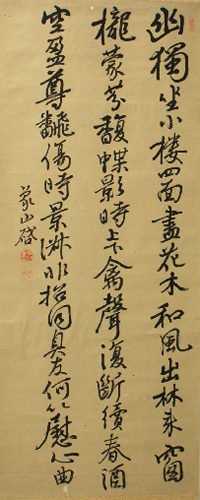 幽獨坐小樓四面盡花木和風出林來窗
櫳蒙芬馥蝶影時上下禽聲復斷續春酒
空盈尊飜傷時景淑非招同友何以慰心曲
蒙山啓